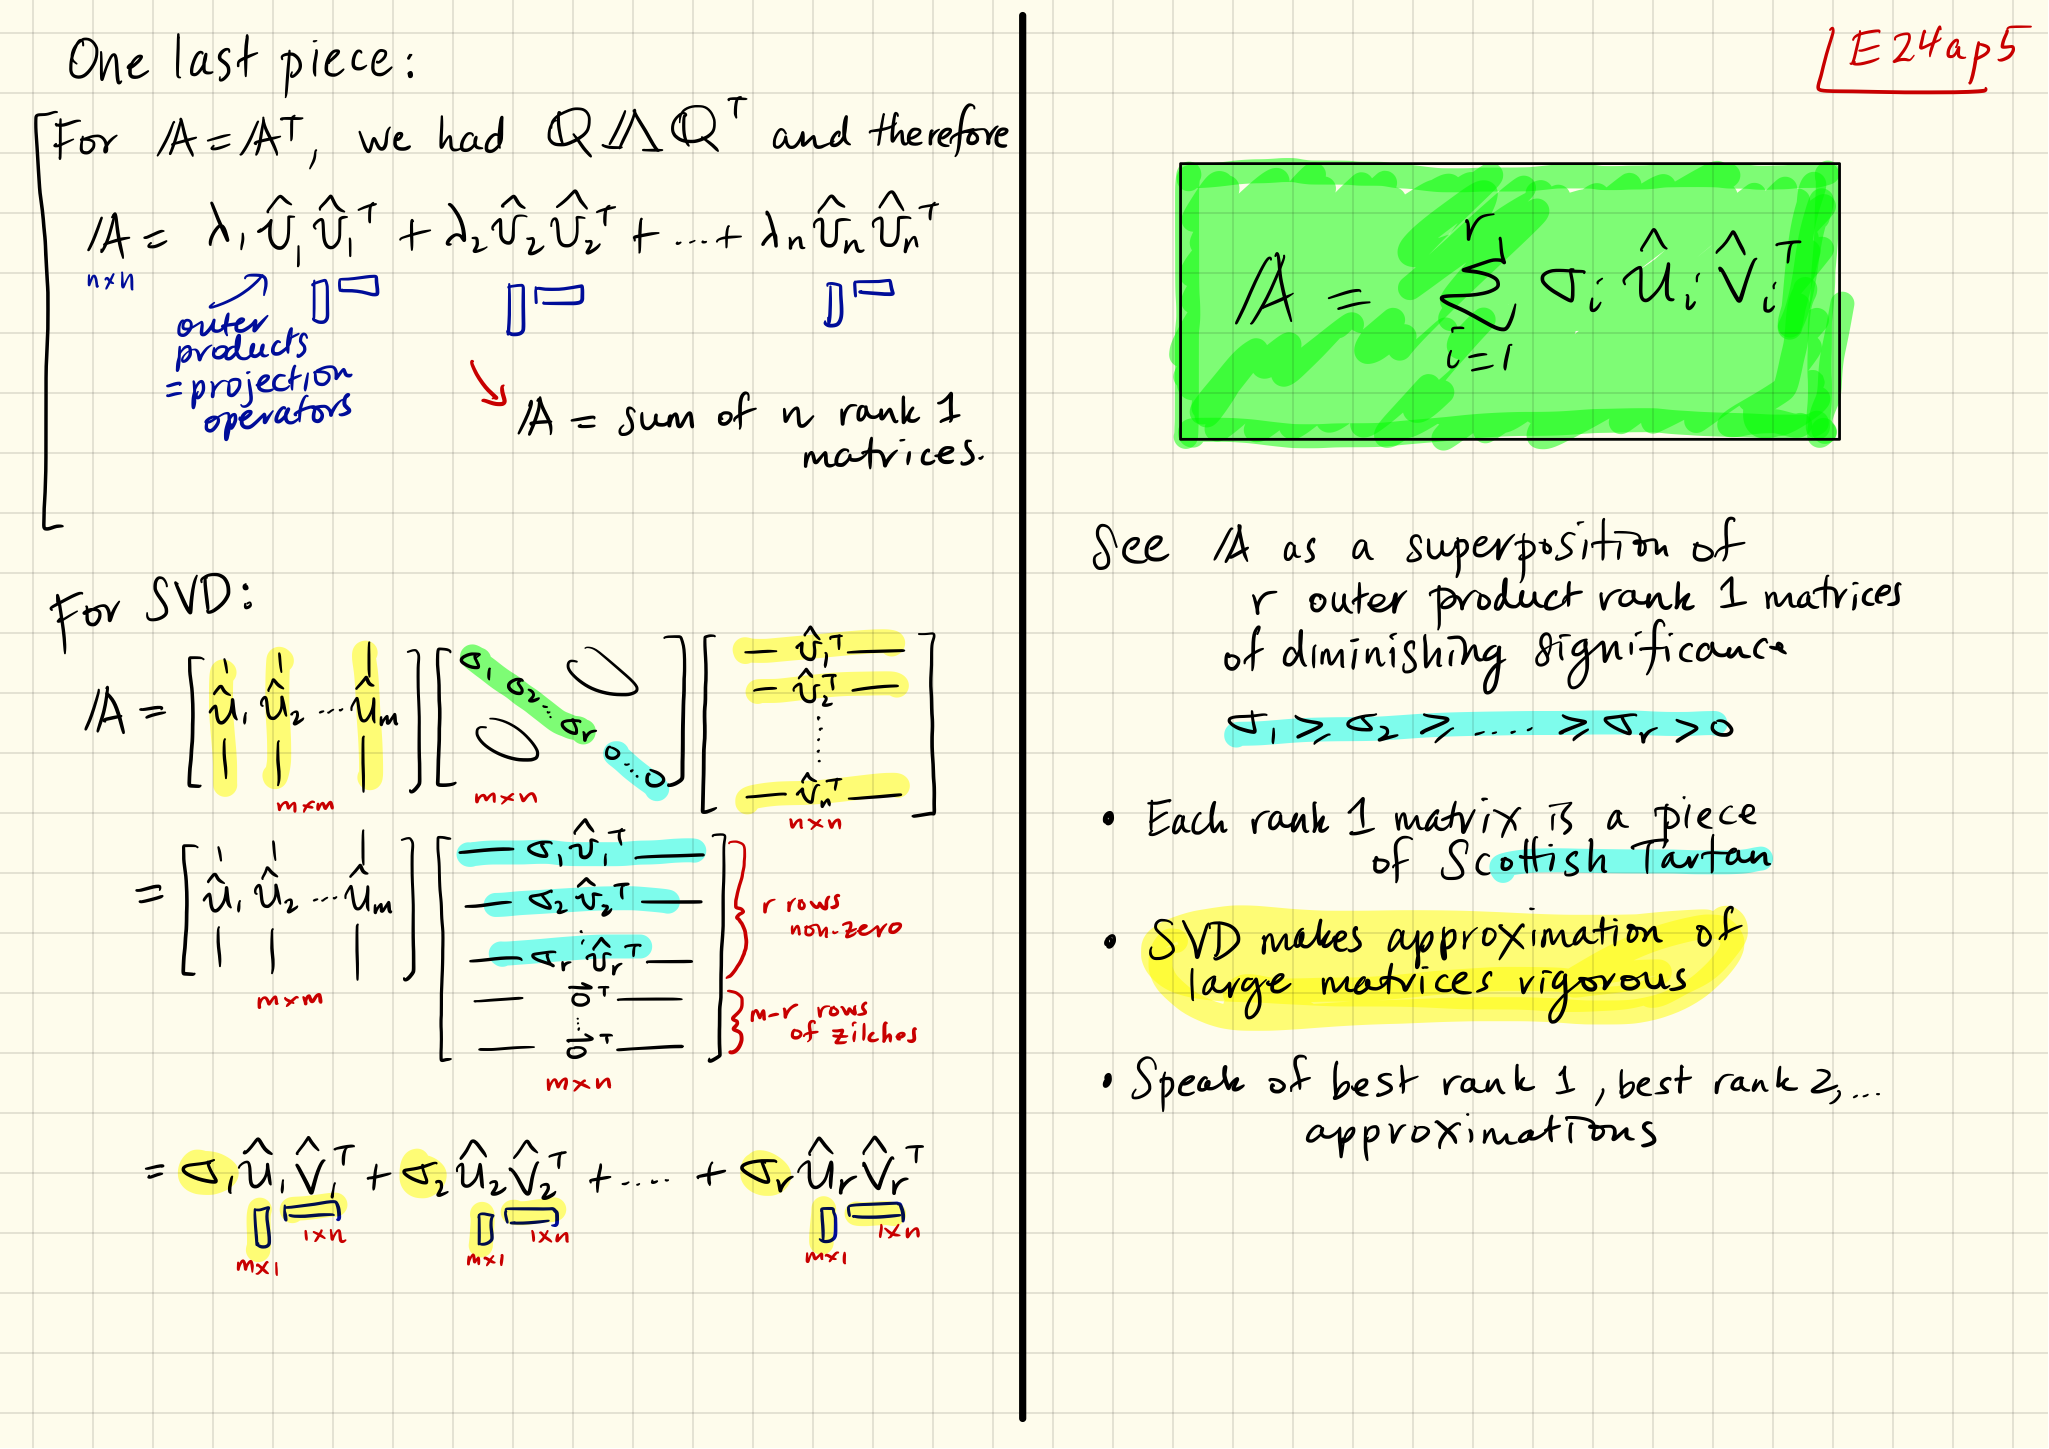 One last piece:
For 𝔸 = 𝔸ᵀ, we had ℚ Λ ℚᵀ and therefore
𝔸 = λ₁ v̂₁ v̂₁ᵀ + λ₂ v̂₂ v̂₂ᵀ + ... + λn v̂n v̂nᵀ
n×n
outer
products
= projection
operators
𝔸 = sum of n rank 1
matrices.
For SVD:
𝔸 = [ û₁ û₂ ... ûm ] [ σ₁ σ₂ ... σr 0 ... 0 ] [ v̂₁ᵀ
v̂₂ᵀ
⋮
v̂nᵀ ]
m×m m×n n×n
= [ û₁ û₂ ... ûm ] [ σ₁ v̂₁ᵀ
σ₂ v̂₂ᵀ
⋮
σr v̂rᵀ
0⃗ᵀ
⋮
0⃗ᵀ ]
r rows
non-zero
m-r rows
of zilches
m×m
m×n
= σ₁ û₁ v̂₁ᵀ + σ₂ û₂ v̂₂ᵀ + ..... + σr ûr v̂rᵀ
1×n 1×n 1×n
m×1 m×1 m×1
E24ap5
𝔸 = r∑i=1 σi ûi v̂iᵀ
See 𝔸 as a superposition of
r outer product rank 1 matrices
of diminishing significance
σ₁ ≥ σ₂ ≥ ..... ≥ σr > 0
• Each rank 1 matrix is a piece
of Scottish Tartan
• SVD makes approximation of
large matrices rigorous
• Speak of best rank 1, best rank 2,...
approximations